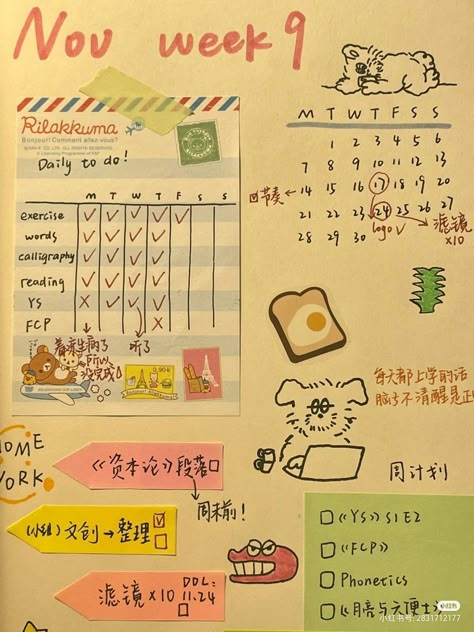 Nov week 9
RiLakkuma
Bonjour! Comment allez-vous?
Daily to do!
M T W T F S S
exercise ✓ ✓ ✓ ✓ ✓
words ✓ ✓ ✓ ✓
calligraphy ✓ ✓ ✓ ✓
reading ✓ ✓ ✓ ✓
YS X ✓ ✓ ✓
FCP X
着凉生病了
所以
没完成
听了
M T W T F S S
1 2 3 4 5 6
7 8 9 10 11 12 13
回节奏 ← 14 15 16 17 18 19 20
21 22 23 24 25 26 27
logo ✓
滤镜
×10
28 29 30
每天都上学的话
脑子不清醒是正
HOME
YORK.
《资本论》段落
周末前!
(小组)文创→整理
滤镜×10 DDL:
11.24
周计划
《YS》S1E2
《FCP》
Phonetics
《月亮与六便士
小红书号: 2831712177